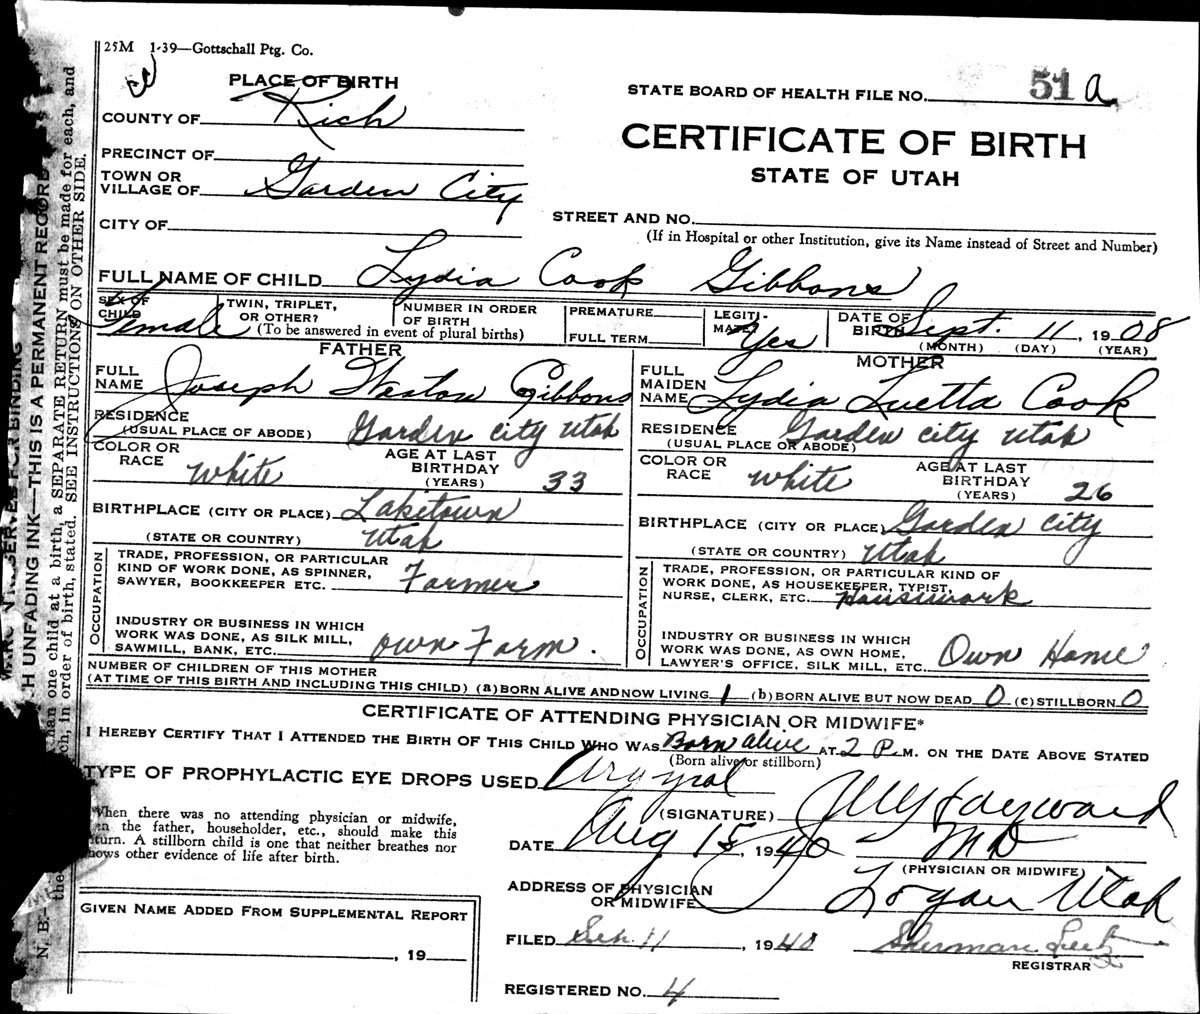 25M 1-39—Gottschall Ptg. Co.
PLACE OF BIRTH
STATE BOARD OF HEALTH FILE NO. 51 a
COUNTY OF Rich
CERTIFICATE OF BIRTH
PRECINCT OF
STATE OF UTAH
TOWN OR VILLAGE OF Garden City
STREET AND NO.
CITY OF
(If in Hospital or other Institution, give its Name instead of Street and Number)
FULL NAME OF CHILD Lydia Cook Gibbons
SEX OF CHILD Female
TWIN, TRIPLET, OR OTHER?
NUMBER IN ORDER OF BIRTH
(To be answered in event of plural births)
PREMATURE
FULL TERM
LEGITIMATE Yes
DATE OF BIRTH Sept. 11, 1908
(MONTH) (DAY) (YEAR)
FATHER
FULL NAME Joseph Weston Gibbons
RESIDENCE (USUAL PLACE OF ABODE) Garden city Utah
COLOR OR RACE White
AGE AT LAST BIRTHDAY (YEARS) 33
BIRTHPLACE (CITY OR PLACE) Laketown
(STATE OR COUNTRY) Utah
OCCUPATION
TRADE, PROFESSION, OR PARTICULAR
KIND OF WORK DONE, AS SPINNER,
SAWYER, BOOKKEEPER ETC. Farmer
INDUSTRY OR BUSINESS IN WHICH
WORK WAS DONE, AS SILK MILL,
SAWMILL, BANK, ETC. own Farm.
MOTHER
FULL MAIDEN NAME Lydia Luetta Cook
RESIDENCE (USUAL PLACE OR ABODE) Garden city Utah
COLOR OR RACE White
AGE AT LAST BIRTHDAY (YEARS) 26
BIRTHPLACE (CITY OR PLACE) Garden city
(STATE OR COUNTRY) Utah
OCCUPATION
TRADE, PROFESSION, OR PARTICULAR KIND OF
WORK DONE, AS HOUSEKEEPER, TYPIST,
NURSE, CLERK, ETC. Housework
INDUSTRY OR BUSINESS IN WHICH
WORK WAS DONE, AS OWN HOME,
LAWYER'S OFFICE, SILK MILL, ETC. Own Home
NUMBER OF CHILDREN OF THIS MOTHER
(AT TIME OF THIS BIRTH AND INCLUDING THIS CHILD) (a) BORN ALIVE AND NOW LIVING 1 (b) BORN ALIVE BUT NOW DEAD 0 (c) STILLBORN 0
CERTIFICATE OF ATTENDING PHYSICIAN OR MIDWIFE*
I HEREBY CERTIFY THAT I ATTENDED THE BIRTH OF THIS CHILD WHO WAS Born alive AT 2 P.M. ON THE DATE ABOVE STATED
(Born alive or stillborn)
TYPE OF PROPHYLACTIC EYE DROPS USED Argyrol
When there was no attending physician or midwife,
the father, householder, etc., should make this
A stillborn child is one that neither breathes nor
other evidence of life after birth.
(SIGNATURE) Hayward
DATE Aug 15, 1940 MD
(PHYSICIAN OR MIDWIFE)
ADDRESS OF PHYSICIAN OR MIDWIFE Logan Utah
GIVEN NAME ADDED FROM SUPPLEMENTAL REPORT
, 19
FILED 11, 1940 Sherman
REGISTRAR
REGISTERED NO. 4
UNFADING INK—THIS IS A PERMANENT RECORD
N. B.
than one child at a birth, a SEPARATE RETURN must be made for each, and
in order of birth, stated. SEE INSTRUCTIONS ON OTHER SIDE.